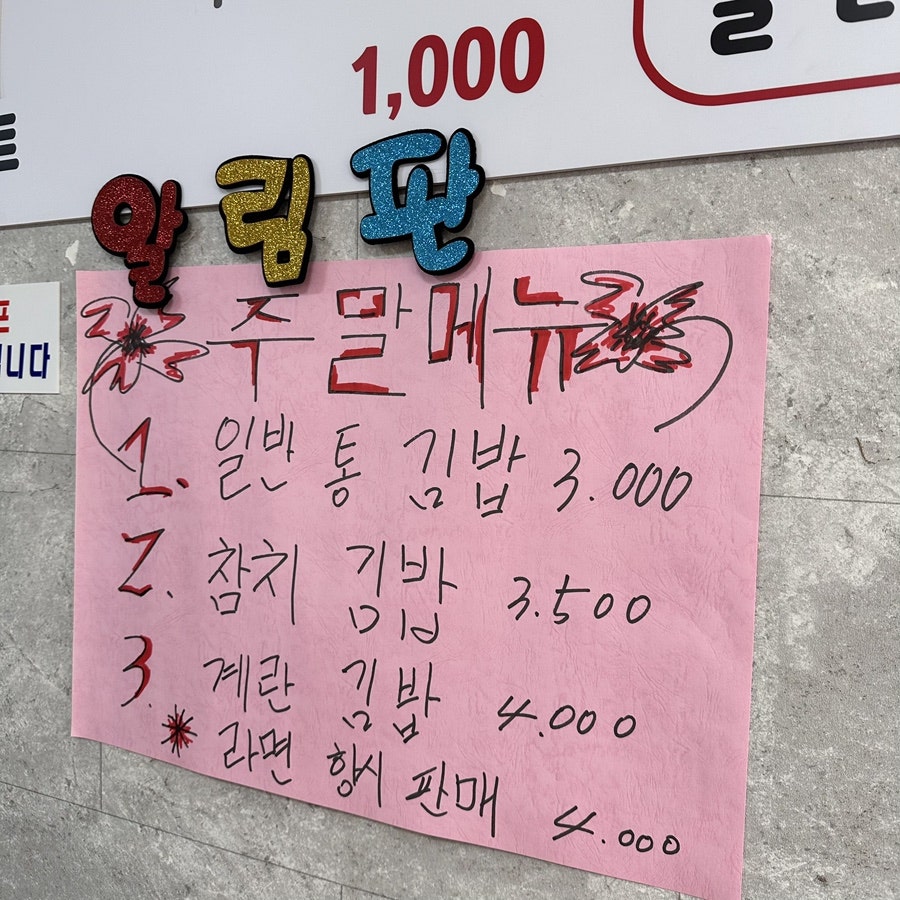 1,000
알림판
주말메뉴
1. 일반 통 김밥 3.000
2. 참치 김밥 3.500
3. 계란 김밥 4.000
* 라면 항시 판매 4.000
니다